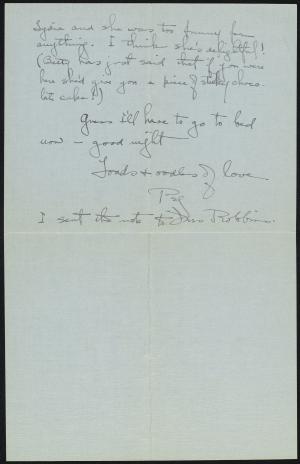 Lydia and she was too funny for
anything. I think she's delightful!
(Betty has just said that if you were
here she'd give you a piece of sticky choco-
late cake!)
Guess I'll have to go to bed
now – good night
Loads + oodles of love
I sent the note to Miss Robbins.